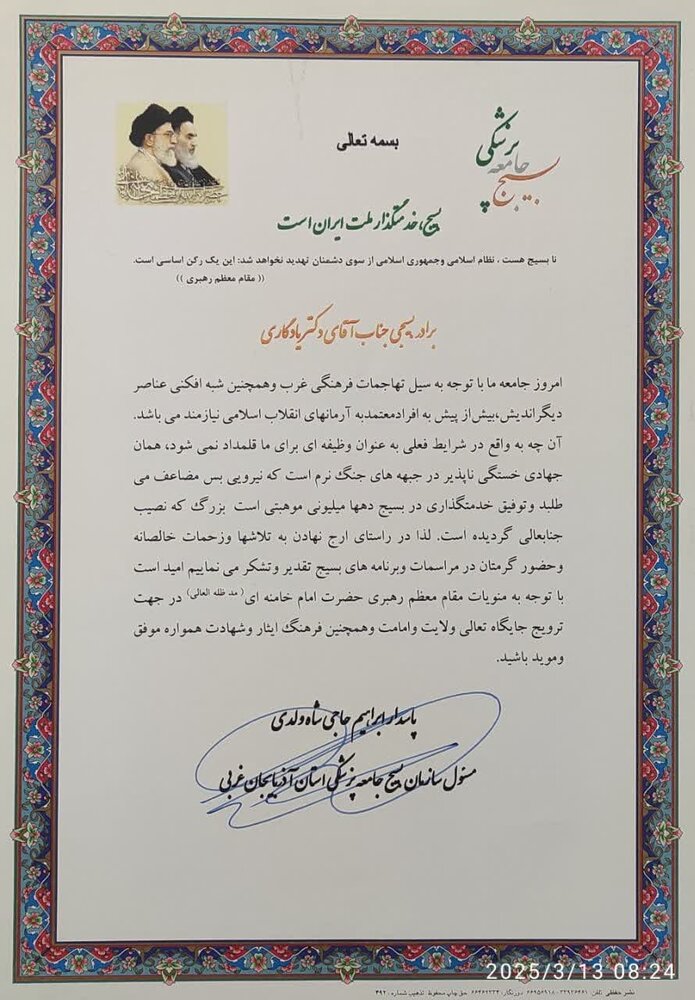 بسمه تعالی
بسیج جامعه پزشکی
بسیج، خدمتگذار ملت ایران است
تا بسیج هست ، نظام اسلامی وجمهوری اسلامی از سوی دشمنان تهدید نخواهد شد: این یک رکن اساسی است.
(( مقام معظم رهبری ))
برادر بسیجی جناب آقای دکتر یادگاری
امروز جامعه ما با توجه به سیل تهاجمات فرهنگی غرب وهمچنین شبه افکنی عناصر
دیگراندیش،بیش از پیش به افرادمعتمدبه آرمانهای انقلاب اسلامی نیازمند می باشد.
آن چه به واقع در شرایط فعلی به عنوان وظیفه ای برای ما قلمداد نمی شود، همان
جهادی خستگی ناپذیر در جبهه های جنگ نرم است که نیرویی بس مضاعف می
طلبد وتوفیق خدمتگذاری در بسیج دهها میلیونی موهبتی است بزرگ که نصیب
جنابعالی گردیده است. لذا در راستای ارج نهادن به تلاشها وزحمات خالصانه
وحضور گرمتان در مراسمات وبرنامه های بسیج تقدیر وتشکر می نماییم امید است
با توجه به منویات مقام معظم رهبری حضرت امام خامنه ای( مد ظله العالی) در جهت
ترویج جایگاه تعالی ولایت وامامت وهمچنین فرهنگ ایثار وشهادت همواره موفق
وموید باشید.
پاسدار ابراهیم حاجی شاه ولدی
مسئول سازمان بسیج جامعه پزشکی استان آذربایجان غربی
2025/3/13 08:24
نشر حفیظی تلفن: ۳۳۹۲۶۴۶۱ - ۶۶۹۵۶۹۱۸ دورنگار: ۶۶۴۶۲۲۳۴ حق چاپ محفوظ. تذهیب شماره: ۴۹۲